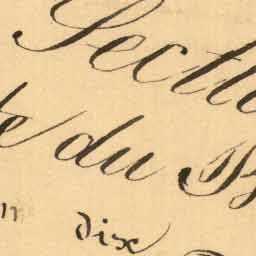 Sectio
te du B
n dix